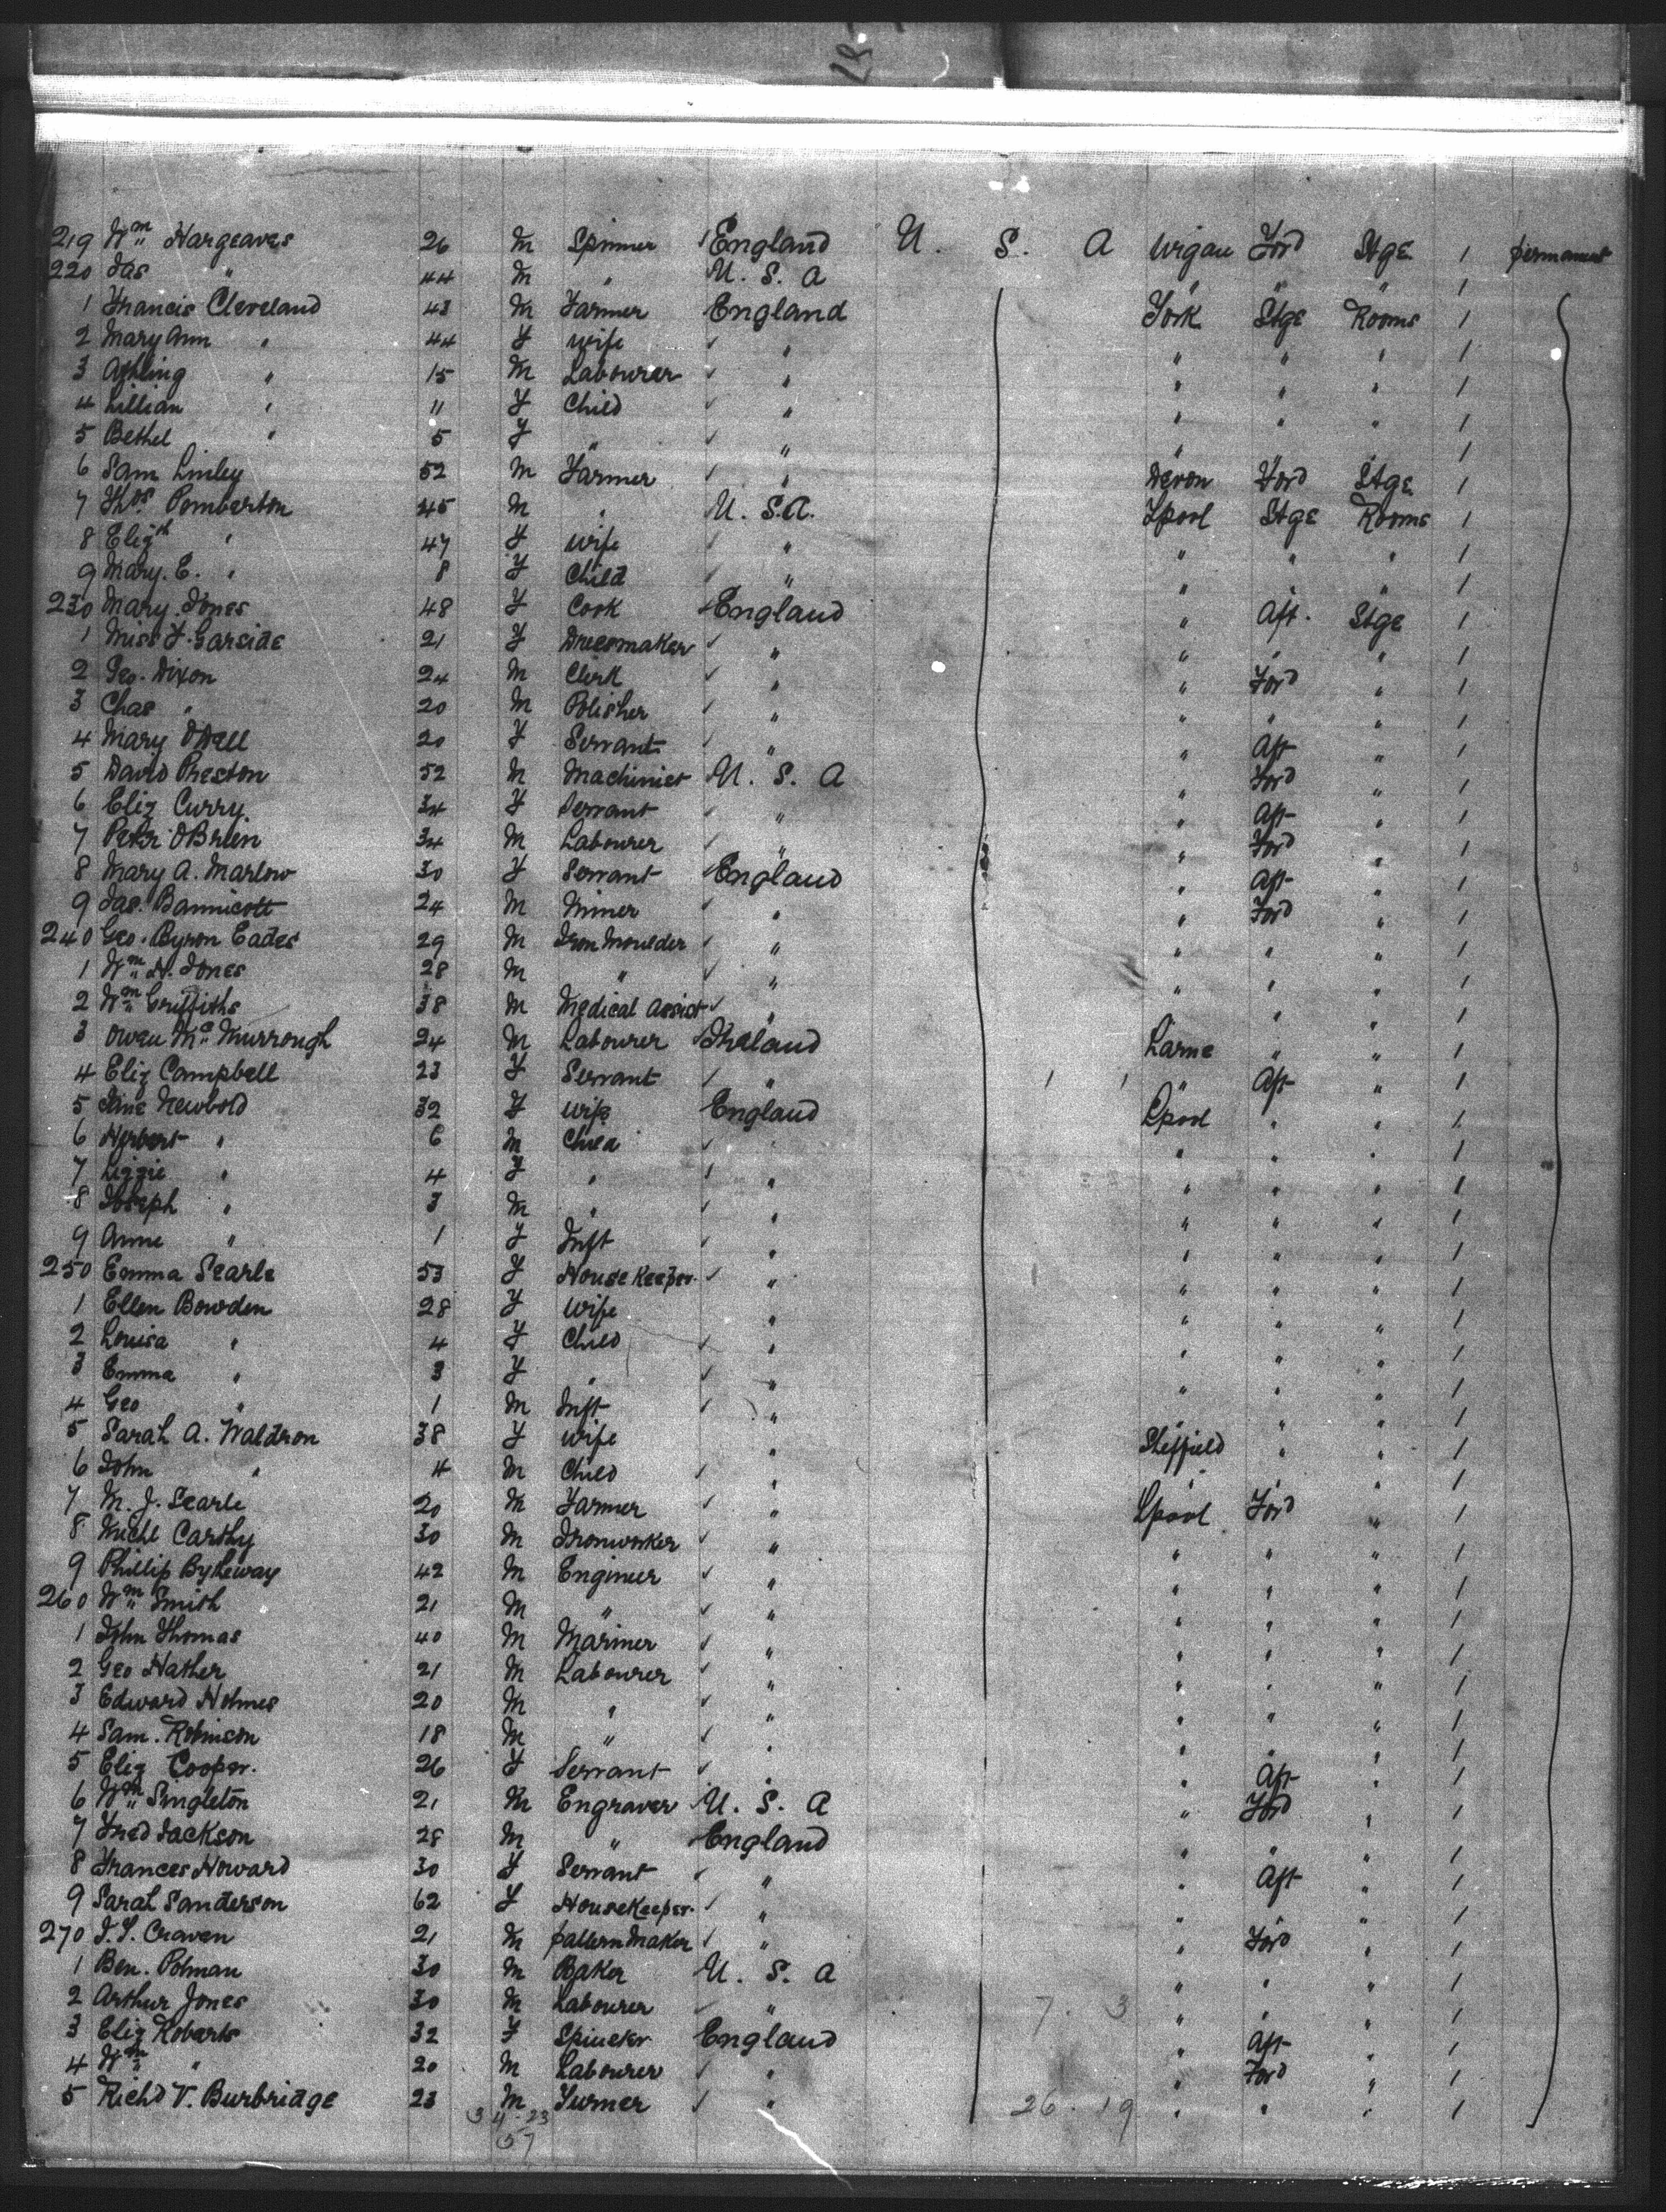 219 Wm Hargeaves 26 M Spinner England U. S. A Wigan Ford Stge 1 permanent
220 Jas " 44 M " U. S. A " " " 1
1 Francis Cleveland 43 M Farmer England York Stge Rooms 1
2 Mary Ann " 44 F wife " " " " 1
3 " 15 M Labourer " " " " 1
4 Lillian " 11 F Child " " " " 1
5 Bethel " 5 F " " " 1
6 Sam Linley 52 M Farmer " Devon Ford Stge 1
7 Thos Pemberton 45 M " U. S. A. Lpool Stge Rooms 1
8 Elizth " 47 F wife " " " " 1
9 Mary. E. " 8 F Child " " " " 1
230 Mary Jones 48 F Cook England " Aft. Stge 1
1 Miss F. Garside 21 F Dressmaker " " " " 1
2 Geo. Dixon 24 M Clerk " " Ford " 1
3 Chas " 20 M Polisher " " " " 1
4 Mary 20 F Servant " " Aft " 1
5 David Preston 52 M Machinist U. S. A " Ford " 1
6 Eliz Curry. 34 F Servant " " Aft " 1
7 Peter OBrien 34 M Labourer " " Ford " 1
8 Mary A. Marlow 30 F Servant England " Aft " 1
9 Jas. Bannicott 24 M Miner " " Ford " 1
240 Geo. Byron Eades 29 M Iron Moulder " " " " 1
1 Wm H. Jones 28 M " " " " " 1
2 Wm Griffiths 38 M Medical Assist " " " 1
3 Owen Mc Murrough 24 M Labourer Ireland Larne " " 1
4 Eliz Campbell 23 F Servant " 1 1 " Aft " 1
5 Jane Newbold 32 F wife England Lpool " " 1
6 Herbert " 6 M Child " " " 1
7 Lizzie " 4 F " " " " " 1
8 Joseph " 3 M " " " " " 1
9 Anne " 1 F Inft " " " " 1
250 Emma Searle 53 F House Keeper " " " " 1
1 Ellen Bowden 28 F Wife " " " " 1
2 Louisa " 4 F Child " " " " 1
3 Emma " 3 F " " " " " 1
4 Geo " 1 M Inft " " " 1
5 Sarah A. Waldron 38 F Wife " Sheffield " " 1
6 John " 4 M Child " " " " 1
7 M. J. Searle 20 M Farmer " Lpool Ford " 1
8 Michl Carthy 30 M Ironworker " " " " 1
9 Phillip Bytheway 42 M Engineer " " " " 1
260 Wm Smith 21 M " " " " " 1
1 John Thomas 40 M Mariner " " " " 1
2 Geo Hather 21 M Labourer " " " " 1
3 Edward Holmes 20 M " " " " " 1
4 Sam. Robinson 18 M " " " " " 1
5 Eliz Cooper. 26 F Servant " " Aft " 1
6 Wm Singleton 21 M Engraver U. S. A " Ford " 1
7 Fred Jackson 28 M " England " " " 1
8 Frances Howard 30 F Servant " " Aft " 1
9 Sarah Sanderson 62 F HouseKeeper " " " 1
270 J. S. Craven 21 M patternMaker " " Ford " 1
1 Ben. Polman 30 M Baker U. S. A " " " 1
2 Arthur Jones 30 M Labourer " 7. 3 " " 1
3 Eliz Robarts 32 F England " Aft " 1
4 Wm " 20 M Labourer " " Ford " 1
5 Richd V. Burbridge 23 M Turner " 26. 19 " " " 1
34-23
57